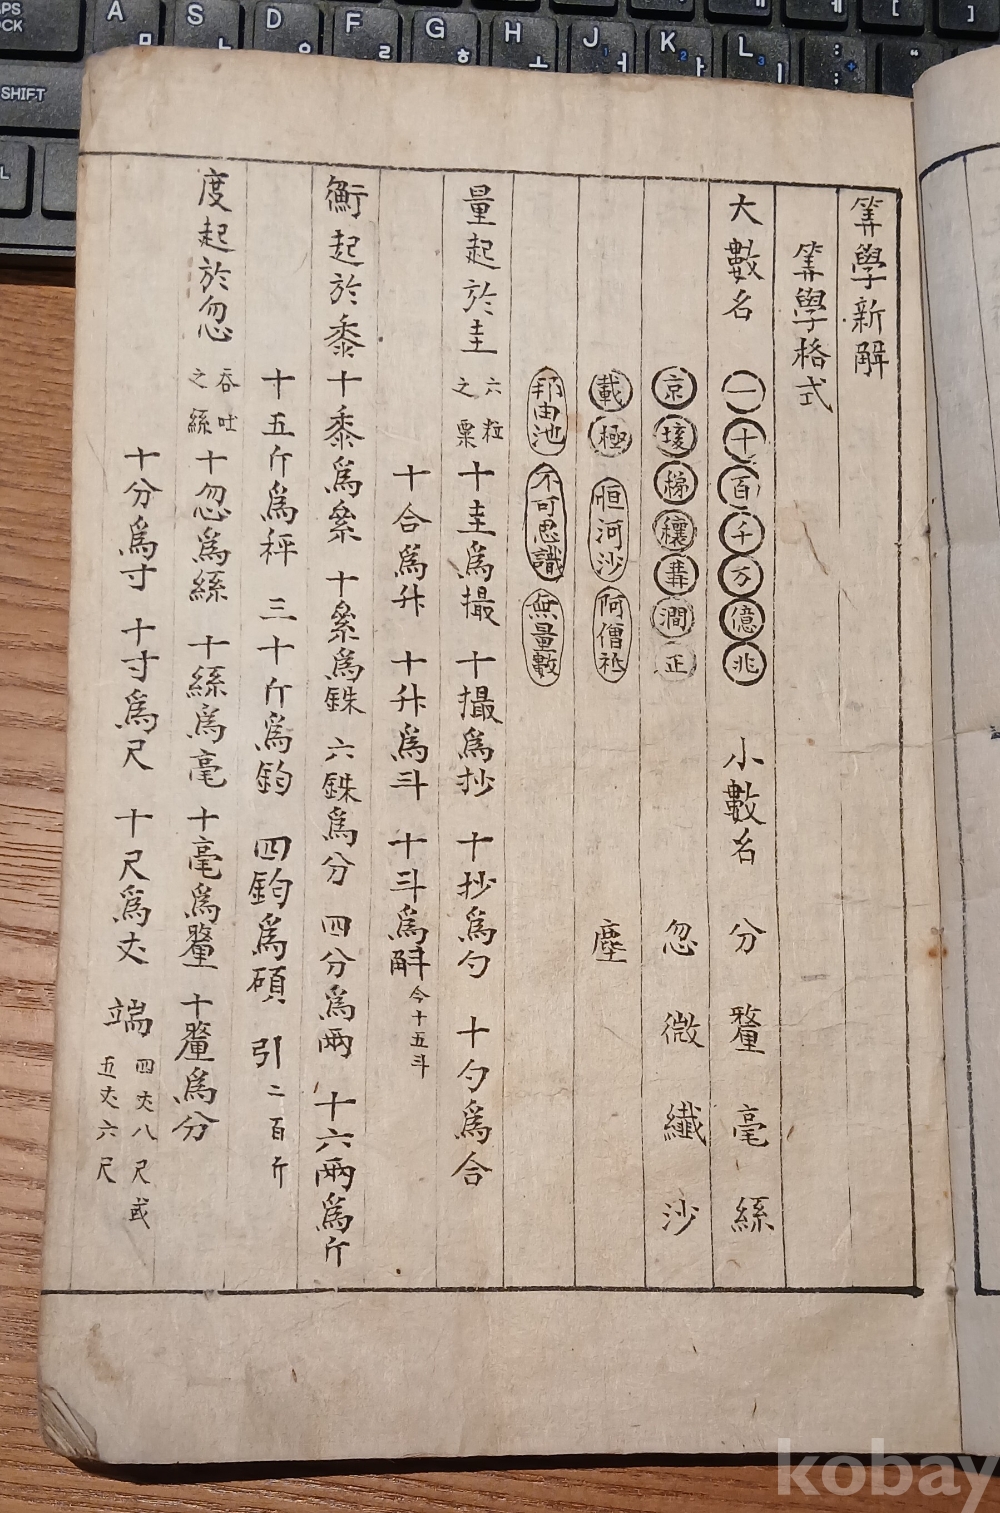 筭學新解
筭學格式
大數名 一 十 百 千 万 億 兆 小數名 分 釐 毫 絲
京 垓 𥞑 穰 溝 澗 正 忽 微 纖 沙
載 極 恒河沙 阿僧祗 塵
那由池 不可思識 無量數
量起於圭 六粒之粟 十圭爲撮 十撮爲抄 十抄爲勺 十勺爲合
十合爲升 十升爲斗 十斗爲斛 今十五斗
衡起於黍 十黍爲絫 十絫爲銖 六銖爲分 四分爲兩 十六兩爲斤
十五斤爲秤 三十斤爲鈞 四鈞爲碩 引 二百斤
度起於忽 吞吐之絲 十忽爲絲 十絲爲毫 十毫爲釐 十釐爲分
十分爲寸 十寸爲尺 十尺爲丈 端 四丈八尺或五丈六尺
A
S
D
F
G
H
J
K
L
SHIFT
kobay